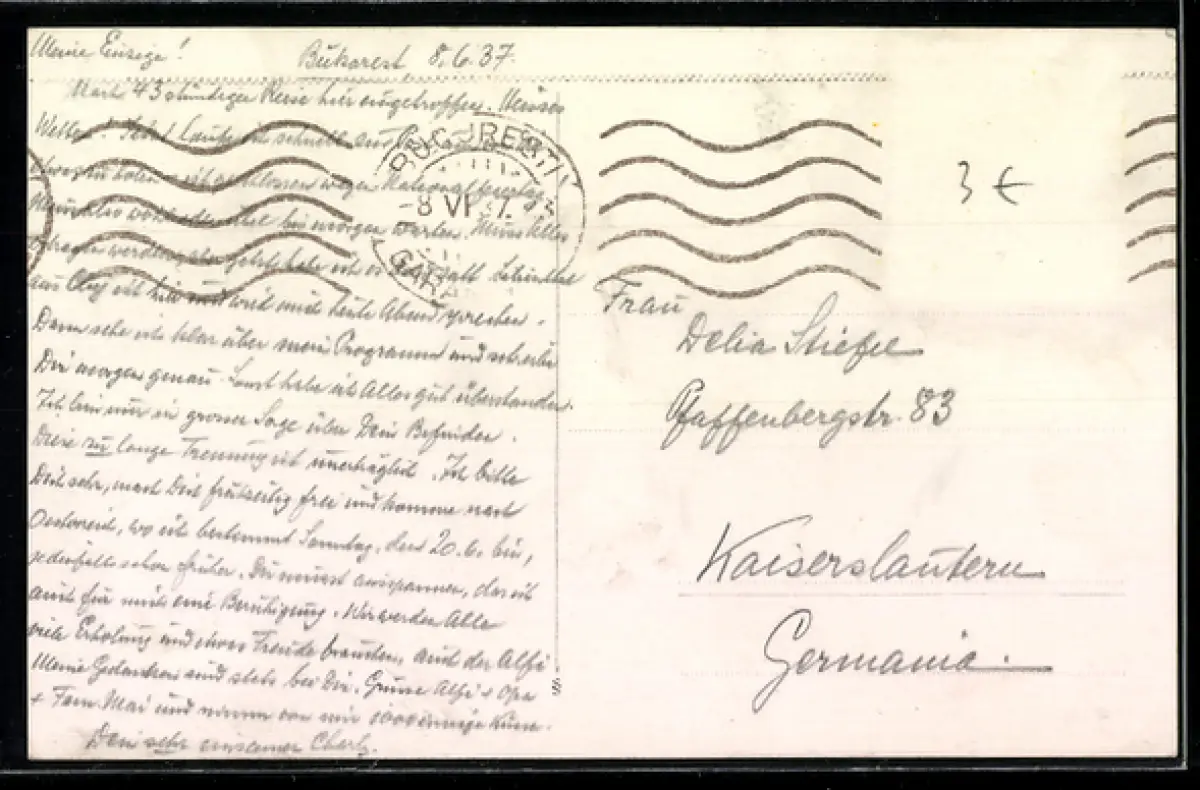 Meine Einzige!
Bukarest 8.6.37.
Nach 43 stündiger Reise hier eingetroffen. Heisses
Wetter! schnell
geschlossen wegen Nationalfeiertag
bis morgen warten. Muss Alles
werden, aber jetzt habe ich
aus Cluj ist hier und wird mich heute Abend sprechen.
Dann sehe ich klar über mein Programm und schreibe
Dir morgen genau. Sonst habe ich Alles gut überstanden.
Ich bin nur in grosser Sorge über Dein Befinden.
Diese zu lange Trennung ist unerträglich. Ich bitte
Dich sehr, mach Dich frühzeitig frei und komme nach
Oesterreich, wo ich bestimmt Sonntag, den 20.6. bin,
jedenfalls schon früher. Du musst ausspannen, das ist
auch für mich eine Beruhigung. Wir werden Alle
viele Erholung und etwas Freude brauchen, auch der Alfi.
Meine Gedanken sind stets bei Dir. Grüsse Alfi + Opa
+ Fam. Mai und nimm von mir 1000 innige Küsse.
Dein sehr einsamer
BUCUREȘTI
-8 VI 37
GARA
3 €
Frau
Delia Stiefel
Pfaffenbergstr. 83
Kaiserslautern
Germania.